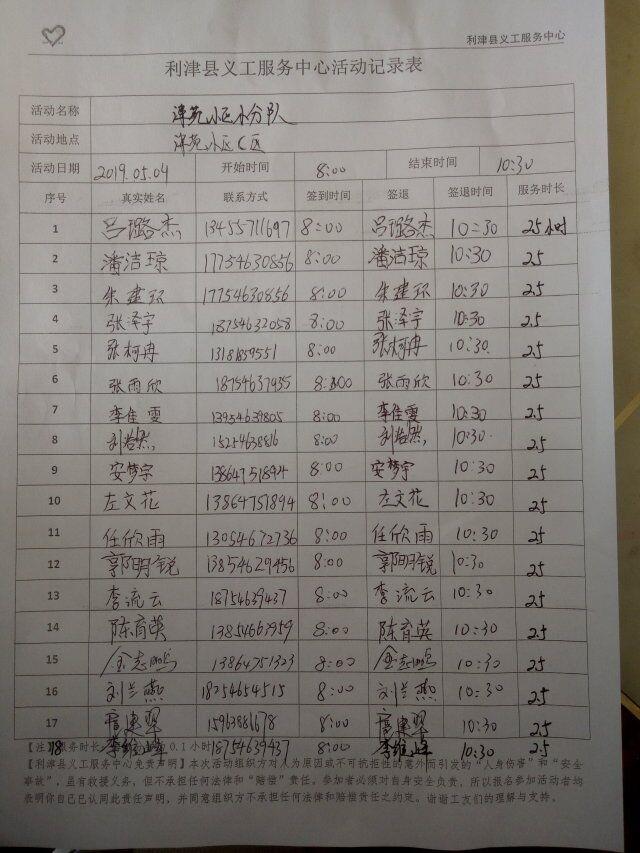 利津县义工服务中心
利津县义工服务中心活动记录表
活动名称 津苑小区小分队
活动地点 津苑小区C区
活动日期 2019.05.04 开始时间 8:00 结束时间 10:30
序号 真实姓名 联系方式 签到时间 签退 签退时间 服务时长
1 吕璐杰 13455711697 8:00 吕璐杰 10:30 25小时
2 潘洁琼 17754630856 8:00 潘洁琼 10:30 25
3 朱建环 17754630856 8:00 朱建环 10:30 25
4 张泽宇 18754632058 8:00 张泽宇 10:30 25
5 张柯冉 1318189551 8:00 张柯冉 10:30 25
6 张雨欣 18754637935 8:00 张雨欣 10:30 25
7 李佳雯 13954639805 8:00 李佳雯 10:30 25
8 刘浩然 15254638816 8:00 刘浩然 10:30 25
9 安梦宇 13864751894 8:00 安梦宇 10:30 25
10 左文花 13864751894 8:00 左文花 10:30 25
11 任欣雨 13054672736 8:00 任欣雨 10:30 25
12 郭明锐 13854629456 8:00 郭明锐 10:30 25
13 李流云 18754639437 8:00 李流云 10:30 25
14 陈育英 13854663959 8:00 陈育英 10:30 25
15 金志鹏 13864751323 8:00 金志鹏 10:30 25
16 刘兰燕 18254654515 8:00 刘兰燕 10:30 25
17 15963881678 8:00 10:30 25
【注】服务时长 0.1小时
18 18754639437 8:00 10:30 25
【利津县义工服务中心免责声明】本次活动组织方对人为原因或不可抗拒性的意外而引发的“人身伤害”和“安全
事故”，虽有救援义务，但不承担任何法律和“赔偿”责任。参加者必须对自身安全负责，所以报名参加活动者均
表明你自己已认同此责任声明，并同意组织方不承担任何法律和赔偿责任之约定。谢谢工友们的理解与支持。